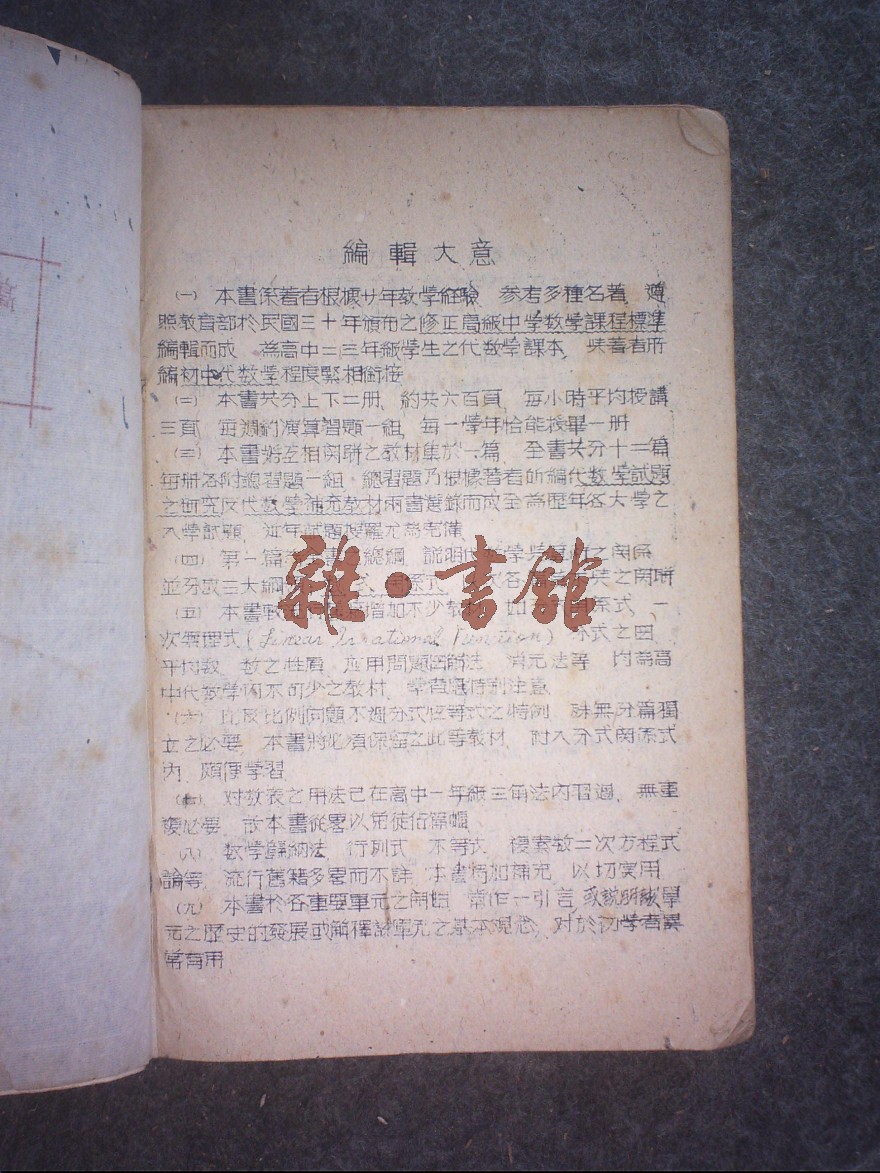 編輯大意
(一) 本書係著者根據廿年教学經驗 参考多種名著, 遵
照教育部於民國三十年頒布之修正高級中学数学課程標準
編輯而成 為高中二三年級学生之代数学課本, 与著者所
編初中代数学程度緊相銜接
(二) 本書共分上下二册, 約共六百頁, 每小時平均授講
三頁, 每週約演算習題一組, 每一学年恰能授畢一册
(三) 本書將互相関聯之教材集於一篇, 全書共分十二篇
每册各附總習題一組, 總習題乃根據著者所編代数学試題
之研究及代数学補充教材兩書選錄而成全為歷年各大学之
入学試題, 近年試題搜羅尤為完備
(四) 第一篇 總綱, 説明 之関係
並分成三大綱 之関聯
(五) 本書 增加不少教材 一
次無理式 (Linear Irrational Function) 分式之四
平均数, 数之性質, 应用問題図解法, 消元法等, 均為高
中代数学內不可少之教材, 学者應特別注意
(六) 比及比例問題不過分式恆等式之特例, 殊無分篇獨
立之必要, 本書將必須保留之此等教材, 附入分式関係式
內, 頗便学習
(七) 对数表之用法已在高中一年級三角法內習過, 無重
複必要, 故本書從畧以免徒佔篇幅
(八) 数学歸納法, 行列式, 不等式, 複素数二次方程式
論等, 流行舊籍多畧而不詳, 本書特加補充, 以切实用
(九) 本書於各重要單元之開始, 常作一引言, 或説明該單
元之歷史的發展或解釋該單元之基本观念, 对於初学者異
常有用
雜·書館